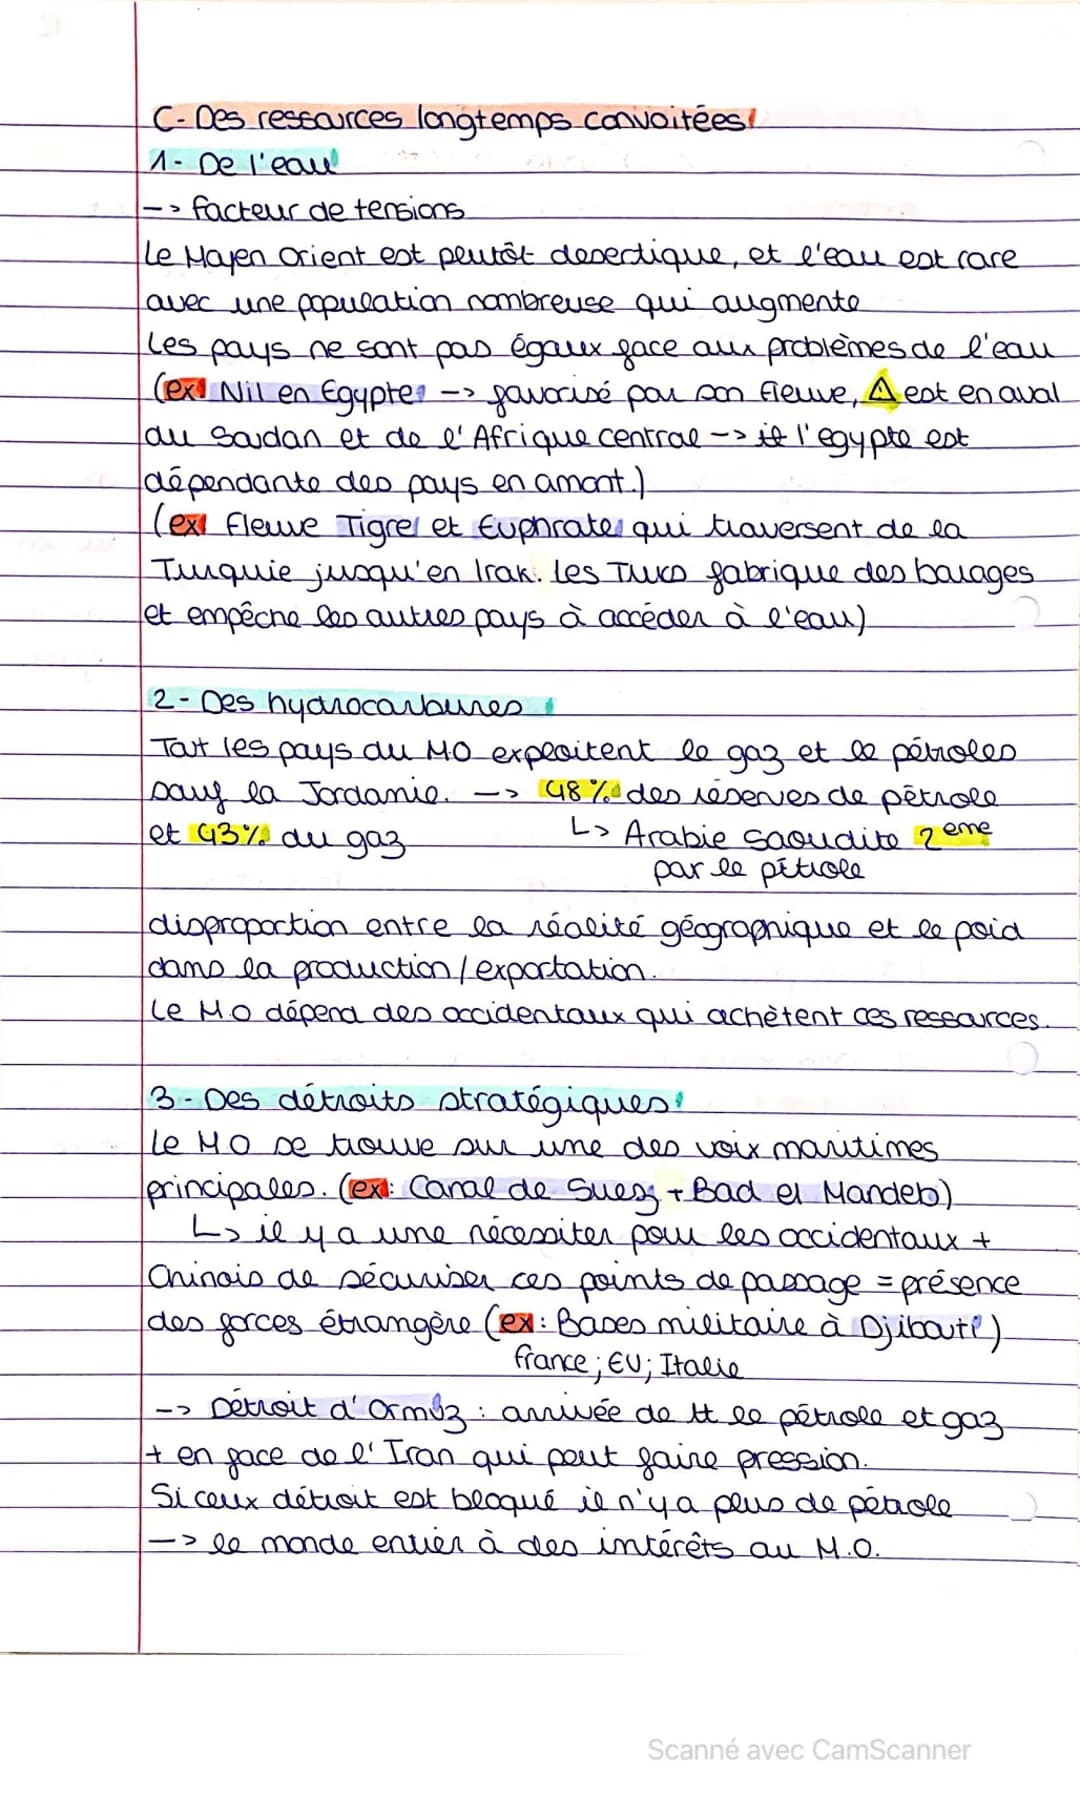 C- Des ressources longtemps convoitées
1- De l'eau
--> facteur de tensions
Le Moyen Orient est plutôt desertique, et l'eau est rare
avec une population nombreuse qui augmente
Les pays ne sont pas égaux face aux problèmes de l'eau
(ex: Nil en Egypte --> favorisé par son fleuve, ⚠ est en aval
du Soudan et de l'Afrique central --> l'egypte est
dépendante des pays en amont.)
(ex: fleuve Tigre et Euphrate qui traversent de la
Turquie jusqu'en Irak. Les Turcs fabrique des barages
et empêche les autres pays à accéder à l'eau)
2- Des hydrocarbures
Tout les pays du M.O exploitent le gaz et le pétroles
sauf la Jordanie. --> 48% des réserves de pétrole
et 43% du gaz
L> Arabie saoudite 2eme
par le pétrole
disproportion entre la réalité géographique et le poid
dans la production/exportation.
Le M.O dépend des occidentaux qui achètent ces ressources.
3- Des détroits stratégiques
Le MO se trouve sur une des voix maritimes
principales. (ex: Canal de Suez + Bad el Mandeb)
L> il y a une nécessiter pour les occidentaux +
Chinois de sécuriser ces points de passage = présence
des forces étrangère (ex: Bases militaire à Djibouti)
france; EU; Italie
--> Détroit d'Ormuz : arrivée de tt le pétrole et gaz
+ en face de l'Iran qui peut faire pression.
Si ceux détroit est bloqué il n'y a plus de pétrole
--> le monde entier à des intérêts au M.O.
Scanné avec CamScanner